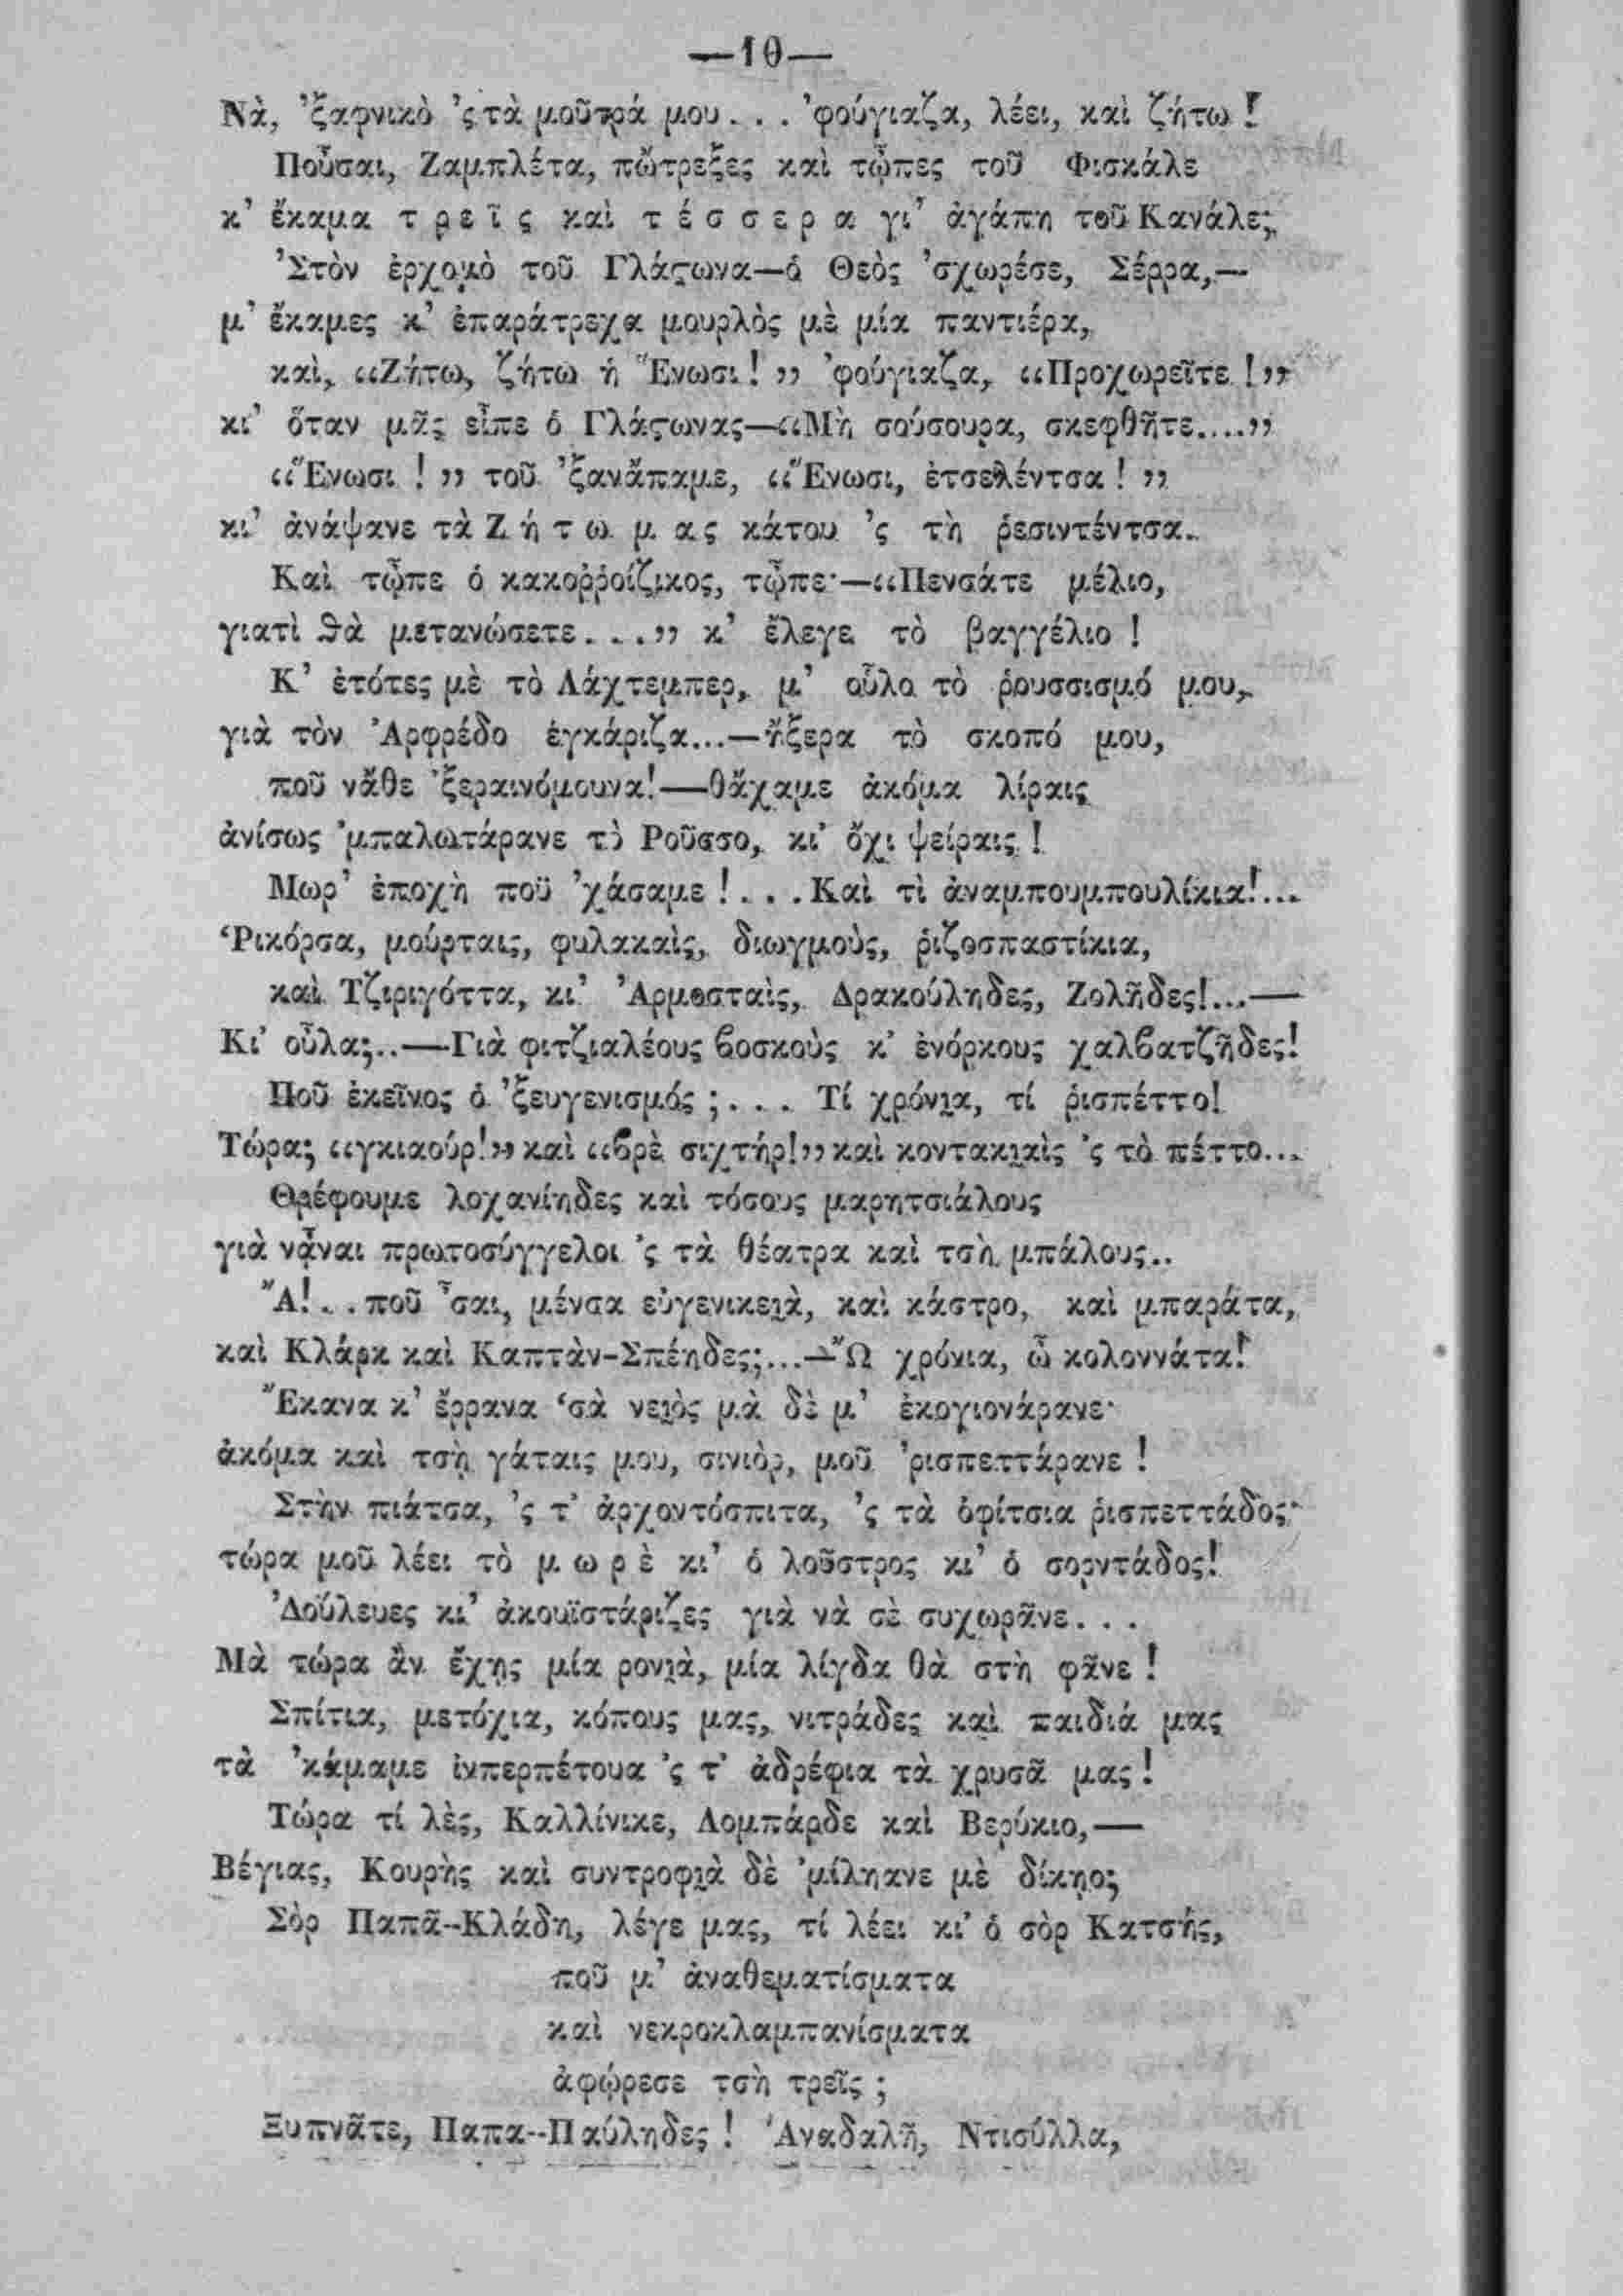 —10—
Νὰ, ’ξαφνικὸ ’ςτὰ μοῦτρά μου... ’φούγιαζα, λέει, καὶ ζήτω!
Ποὖσαι, Ζαμπλέτα, πὤτρεξες καὶ τὦπες τοῦ Φισκάλε
κ’ ἔκαμα τρεῖς καὶ τέσσερα γι’ ἀγάπη τοῦ Κανάλε;
’Στὸν ἐρχομὸ τοῦ Γλάςωνα—ὁ Θεὸς ’σχωρέσε, Σέρρα,—
μ’ ἔκαμες κ’ ἐπαράτρεχα μουρλὸς μὲ μία παντιέρα,
καὶ, “Ζήτω, ζήτω ἡ Ἕνωσι!” ’φούγιαζα, “Προχωρεῖτε!”
κι’ ὅταν μᾶς εἶπε ὁ Γλάςωνας—“Μὴ σούσουρα, σκεφθῆτε....”
“Ἕνωσι!” τοῦ ’ξανἄπαμε, “Ἕνωσι, ἐτσελέντσα!”
κι’ ἀνάψανε τὰ Ζήτω μας κάτου ’ς τὴ ῥεσιντέντσα.
Καὶ τὦπε ὁ κακοῤῥοίζικος, τὦπε·—“Πενσάτε μέλιο,
γιατὶ ϑὰ μετανώσετε....” κ’ ἔλεγε τὸ βαγγέλιο!
Κ’ ἐτότες μὲ τὸ Λάχτεμπερ, μ’ οὗλο τὸ ῥουσσισμό μου,
γιὰ τὸν Ἀρφρέδο ἐγκάριζα...—ἤξερα τὸ σκοπό μου,
ποῦ νἄθε ’ξεραινόμουνα!—θἄχαμε ἀκόμα λίραις
ἀνίσως ’μπαλωτάρανε τὸ Ροῦσσο, κι’ ὄχι ψείραις!
Μωρ’ ἐποχὴ ποῦ ’χάσαμε!... Καὶ τὶ ἀναμπουμπουλίκια!...
‘Ρικόρσα, μούρταις, φυλακαὶς, διωγμοὺς, ῥιζοσπαστίκια,
καὶ Τζιριγόττα, κι’ Ἀρμοσταὶς, Δρακούληδες, Ζολῆδες!...—
Κι’ οὗλα;..—Γιὰ φιτζιαλέους βοσκοὺς κ’ ἐνόρκους χαλβατζῆδες!
Ποῦ ἐκεῖνος ὁ ’ξευγενισμός;... Τί χρόνια, τί ῥισπέττο!
Τώρα; “γκιαούρ!” καὶ “βρὲ σιχτήρ!” καὶ κοντακιαὶς ’ς τὸ πέττο...
Θρέφουμε λοχανίηδες καὶ τόσους μαρητσιάλους
γιὰ νἆναι πρωτοσύγγελοι ’ς τὰ θέατρα καὶ τσὴ μπάλους..
Ἄ!... ποῦ ’σαι, μένσα εὐγενικειὰ, καὶ κάστρο, καὶ μπαράτα,
καὶ Κλάρκ καὶ Καπτὰν-Σπέηδες;...—Ὢ χρόνια, ὦ κολοννάτα!
Ἔκανα κ’ ἔρρανα ‘σὰ νειὸς μὰ δὲ μ’ ἐκογιονάρανε·
ἀκόμα καὶ τσὴ γάταις μου, σινιὸρ, μοῦ ’ρισπεττάρανε!
Στὴν πιάτσα, ’ς τ’ ἀρχοντόσπιτα, ’ς τὰ ὀφίτσια ῥισπεττάδος·
τώρα μοῦ λέει τὸ μωρὲ κι’ ὁ λοῦστρος κι’ ὁ σορντάδος!
’Δούλευες κι’ ἀκουϊστάριζες γιὰ νὰ σὲ συχωρᾶνε...
Μὰ τώρα ἂν ἔχῃς μία ρονιὰ, μία λίγδα θὰ στὴ φᾶνε!
Σπίτια, μετόχια, κόπους μας, νιτράδες καὶ παιδιά μας
τὰ ’κάμαμε ἰνπερπέτουα ’ς τ’ ἀδρέφια τὰ χρυσᾶ μας!
Τώρα τί λὲς, Καλλίνικε, Λομπάρδε καὶ Βερύκιο,—
Βέγιας, Κουρὴς καὶ συντροφιὰ δὲ ’μίληανε μὲ δίκηο;
Σὸρ Παπᾶ-Κλάδη, λέγε μας, τί λέει κι’ ὁ σὸρ Κατσής,
ποῦ μ’ ἀναθεματίσματα
καὶ νεκροκλαμπανίσματα
ἀφώρεσε τσὴ τρεῖς;
Ξυπνᾶτε, Παπα-Παύληδες! Ἀναδαλῆ, Ντισύλλα,